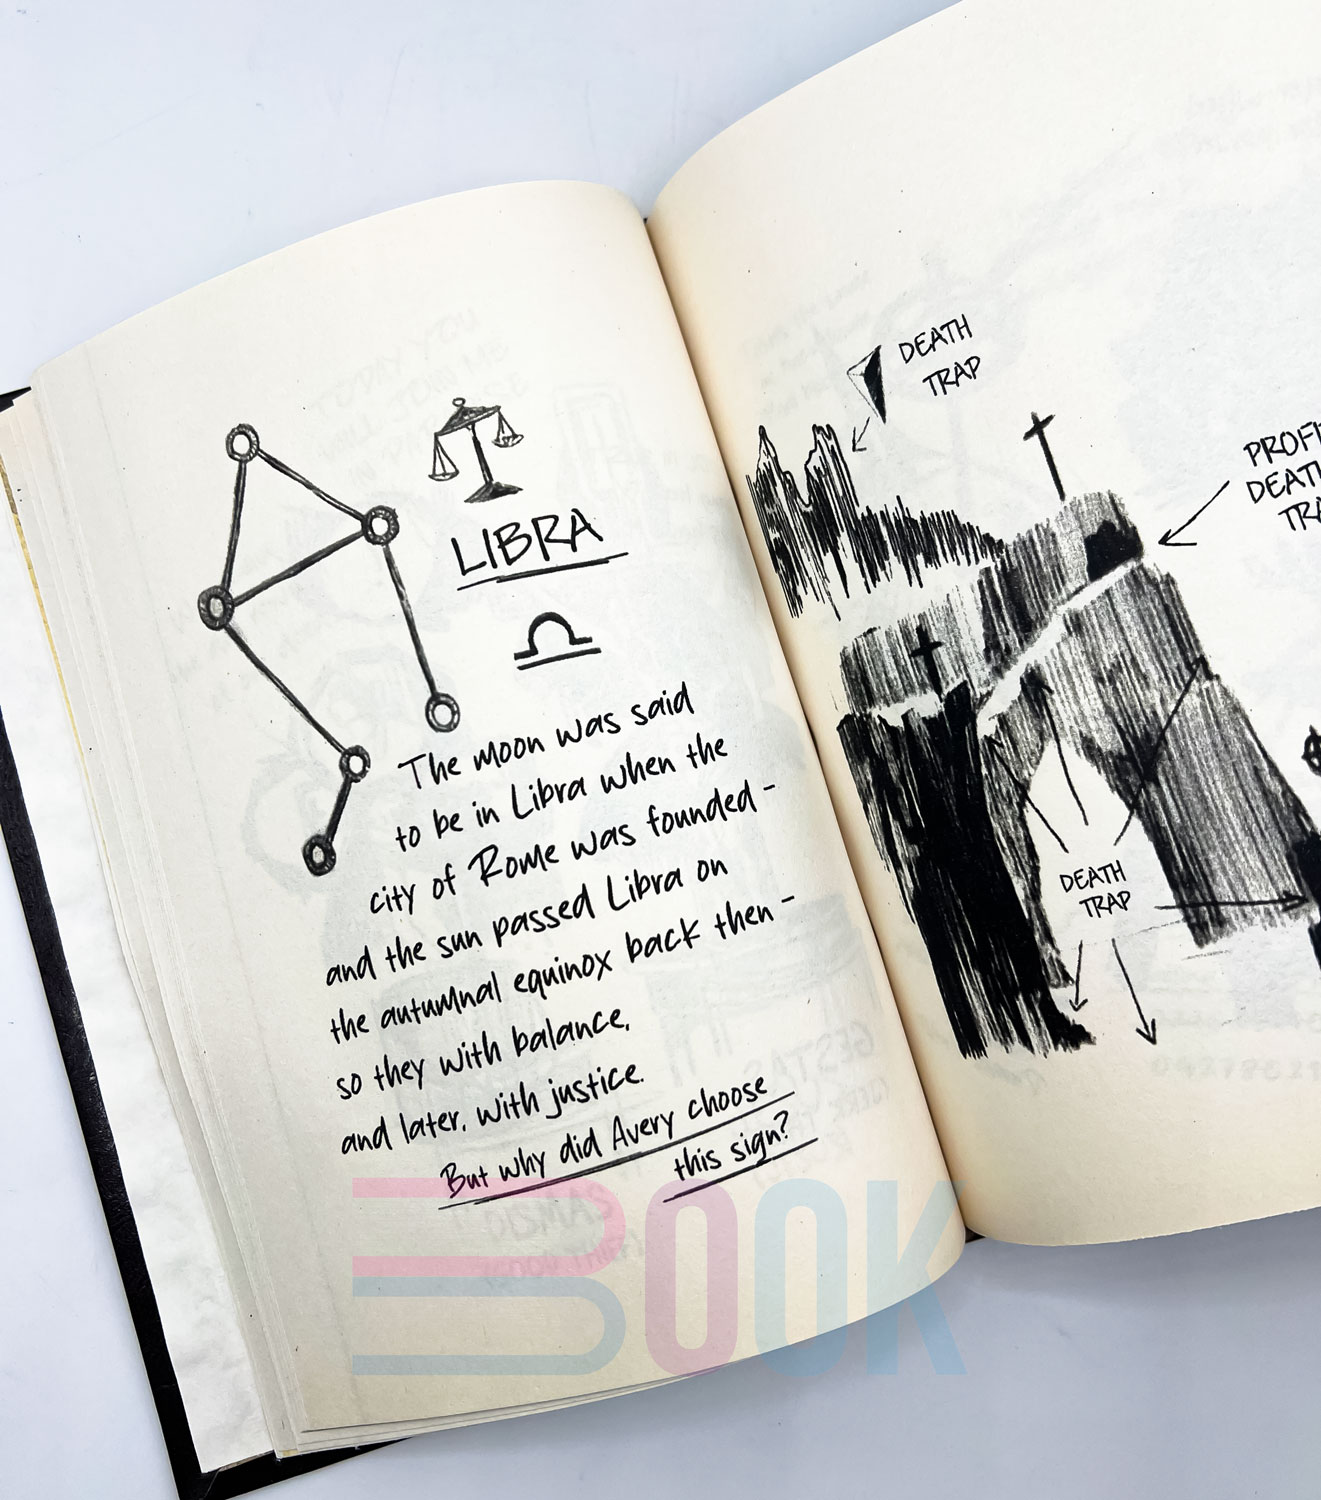 LIBRA
The moon was said
to be in Libra when the
city of Rome was founded -
and the sun passed Libra on
the autumnal equinox back then -
so they with balance,
and later, with justice.
But why did Avery choose
this sign?
DEATH
TRAP
DEATH
TRAP
GESTAS
DISMAS
BOOK